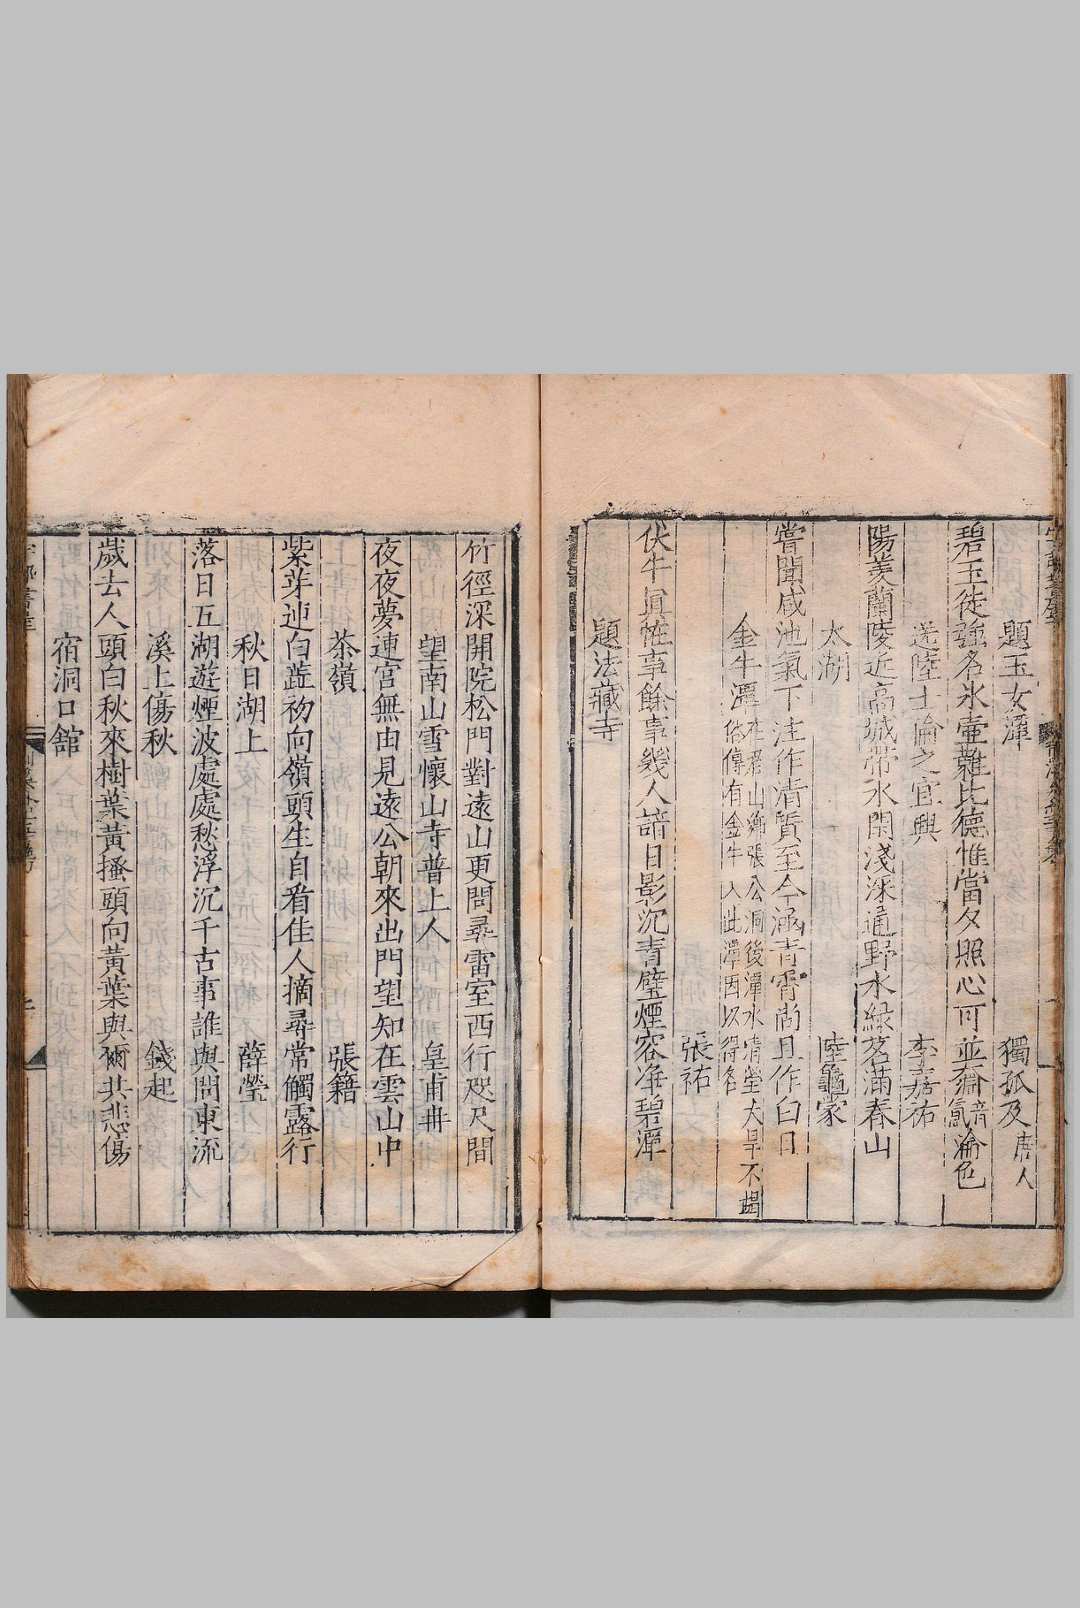 題玉女潭 獨孤及 唐人
碧玉徒強名氷壷難比德惟當夕照心可並𣸣淪色
送陸士倫之宜興 李嘉祐
陽羡蘭陵近高城帶水閑淺深通野水綠茗滿春山
太湖 陸龜蒙
嘗聞咸池氣下注作清質至今涵青霄尚且作白日
金牛潭 在湛山濟張公洞後潭水清瑩大旱不竭
俗傳有金牛入此潭因以得名
張祐
伏牛眞性事餘事幾人諳日影沉青璧煙容净碧潭
題法藏寺
竹徑深開院松門對遠山更問尋雷室西行咫尺間
望南山雪懷山寺普上人 皇甫冉
夜夜夢連宮無由見遠公朝來出門望知在雲山中
茶嶺 張籍
紫芽連白蕋初向嶺頭生自看佳人摘尋常觸露行
秋日湖上 薛瑩
落日五湖遊煙波處處愁浮沉千古事誰與問東流
溪上傷秋 錢起
歲去人頭白秋來樹葉黃搔頭向黃葉與爾共悲傷
宿洞口館